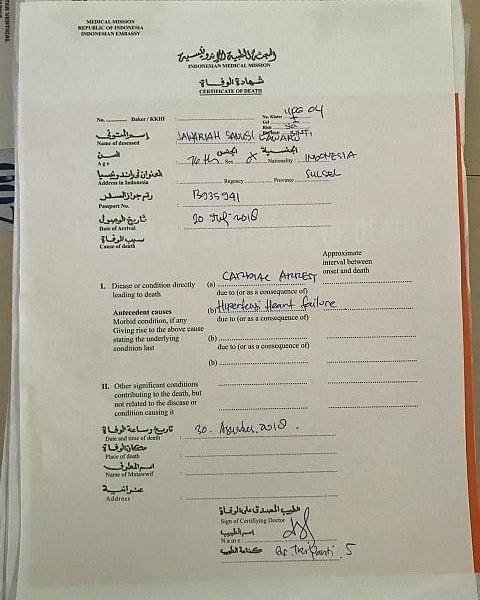 MEDICAL MISSION
REPUBLIC OF INDONESIA
INDONESIAN EMBASSY
البعثة الطبية الإندونيسية
INDONESIAN MEDICAL MISSION
شهادة الوفاة
CERTIFICATE OF DEATH
No. Daker / KKHI
No. Kloter UPG 04
إسم المتوفى
Name of deceased JAWARIAH SANUSI
السن
Age 76 th
الجنس
Sex
الجنسية
Nationality : INDONESIA
العنوان في إندونيسيا
Address in Indonesia Regency Province SULSEL
رقم جواز السفر
Passport No. B935941
تاريخ الوصول
Date of Arrival 20 July 2018
سبب الوفاة
Cause of death
Approximate
interval between
onset and death
I. Disease or condition directly
leading to death
(a) CARDIAC ARREST
due to (or as a consequence of)
Antecedent causes
Morbid condition, if any
Giving rise to the above cause
stating the underlying
condition last
(b) Hipertensi Heart failure
due to (or as a consequence of)
(b)
due to (or as a consequence of)
(b)
II. Other significant conditions
contributing to the death, but
not related to the disease or
condition causing it
تاريخ وساعة الوفاة
Date and time of death : 30 Agustus 2018
مكان الوفاة
Place of death :
اسم المطوف
Name of Matawwif :
عنوانية
Address :
طبيب المصدق على الوفاة
Sign of Certifiying Doctor
إسم الطبيب
Name :
كتابة الطبيب dr. Tri